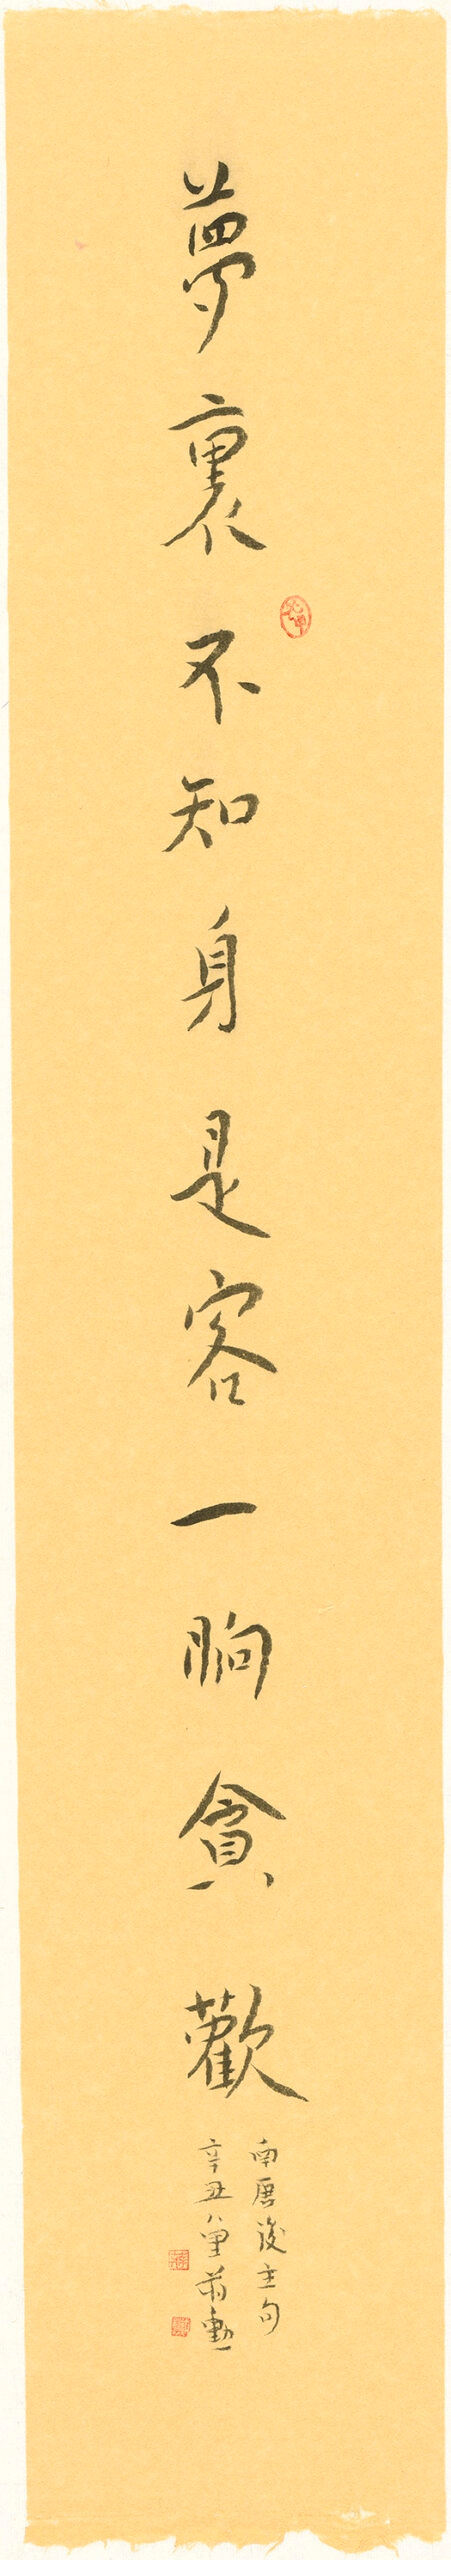 夢裏不知身是客一晌貪歡
南唐後主句
辛丑八里蔣勳